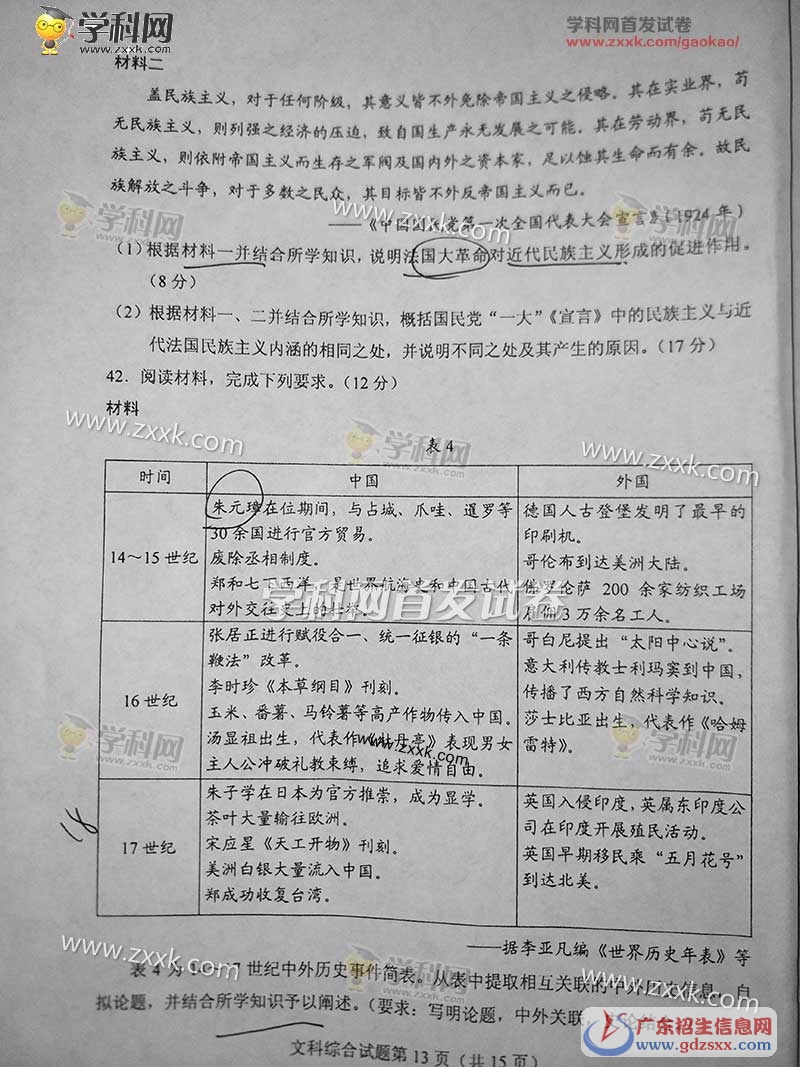 学科网
www.zxxk.com
学科网首发试卷
www.zxxk.com/gaokao/
材料二
盖民族主义，对于任何阶级，其意义皆不外免除帝国主义之侵略。其在实业界，苟
无民族主义，则列强之经济的压迫，致自国生产永无发展之可能。其在劳动界，苟无民
族主义，则依附帝国主义而生存之军阀及国内外之资本家，足以蚀其生命而有余。故民
族解放之斗争，对于多数之民众，其目标皆不外反帝国主义而已。
——《中国国民党第一次全国代表大会宣言》（1924年）
(1) 根据材料一并结合所学知识，说明法国大革命对近代民族主义形成的促进作用。
（8分）
(2) 根据材料一、二并结合所学知识，概括国民党“一大”《宣言》中的民族主义与近
代法国民族主义内涵的相同之处，并说明不同之处及其产生的原因。（17分）
42．阅读材料，完成下列要求。（12分）
材料
表4
时间 中国 外国
14～15世纪
朱元璋在位期间，与占城、爪哇、暹罗等
30余国进行官方贸易。
废除丞相制度。
郑和七下西洋，是世界航海史和中国古代
对外交往史上的壮举。
德国人古登堡发明了最早的
印刷机。
哥伦布到达美洲大陆。
佛罗伦萨 200 余家纺织工场
雇佣3万余名工人。
16世纪
张居正进行赋役合一、统一征银的“一条
鞭法”改革。
李时珍《本草纲目》刊刻。
玉米、番薯、马铃薯等高产作物传入中国。
汤显祖出生，代表作《牡丹亭》表现男女
主人公冲破礼教束缚，追求爱情自由。
哥白尼提出“太阳中心说”。
意大利传教士利玛窦到中国，
传播了西方自然科学知识。
莎士比亚出生，代表作《哈姆
雷特》。
17世纪
朱子学在日本为官方推崇，成为显学。
茶叶大量输往欧洲。
宋应星《天工开物》刊刻。
美洲白银大量流入中国。
郑成功收复台湾。
英国入侵印度，英属东印度公
司在印度开展殖民活动。
英国早期移民乘“五月花号”
到达北美。
18
——据李亚凡编《世界历史年表》等
表4为14～17世纪中外历史事件简表。从表中提取相互关联的中外历史信息，自
拟论题，并结合所学知识予以阐述。（要求：写明论题，中外关联，
文科综合试题第13页（共15页）
学科网首发试卷
广东招生信息网
www.gdzsxx.com